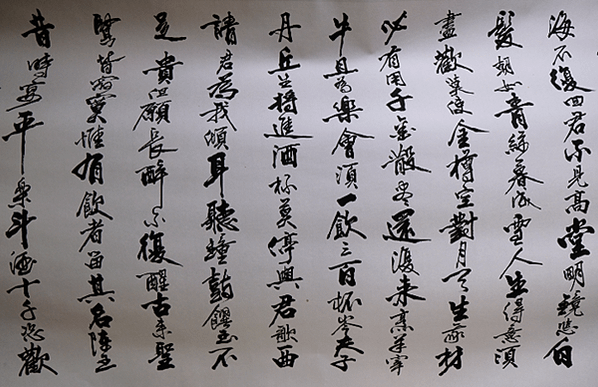 海不復回君不見高堂明鏡悲白
髮朝如青絲暮成雪人生得意須
盡歡莫使金樽空對月天生我材
必有用千金散盡還復来烹羊宰
牛且為樂會須一飲三百杯岑夫子
丹丘生將進酒杯莫停與君歌一曲
請君為我傾耳聽鐘鼓饌玉不
足貴但願長醉不復醒古来聖
賢皆寂寞惟有飲者留其名陳王
昔時宴平樂斗酒十千恣歡